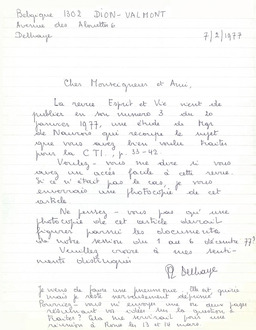 Belgique 1302 DION-VALMONT
Avenue des Alouettes 6
Delhaye 7/2/1977
Cher Monseigneur et Ami,
La revue Esprit et Vie vient de
publier en son numéro 3 du 20
janvier 1977, une étude de Mgr
de Naurois qui recoupe le sujet
que vous avez bien voulu traiter
pour la CTI, p. 33-42
Voulez-vous me dire si vous
avez un accès facile à cette revue.
Si ce n'était pas le cas, je vous
enverrais un photocopie de cet
article.
Ne pensez-vous pas qu'une
photocopie de cet article devrait
figurer parmi les documents
de notre session du 1 au 6 décembre 77?
Veuillez croire à mes senti-
ments distingués
Delhaye
Je viens de faire une pneumonie. Elle est guérie
mais je reste nerveusement déprimé.
Pourriez-vous m'envoyer une ou deux pages
résumant vos idées sur la question à
traiter? Cela me servirait pour une
réunion à Rome les 13 et 14 mars.